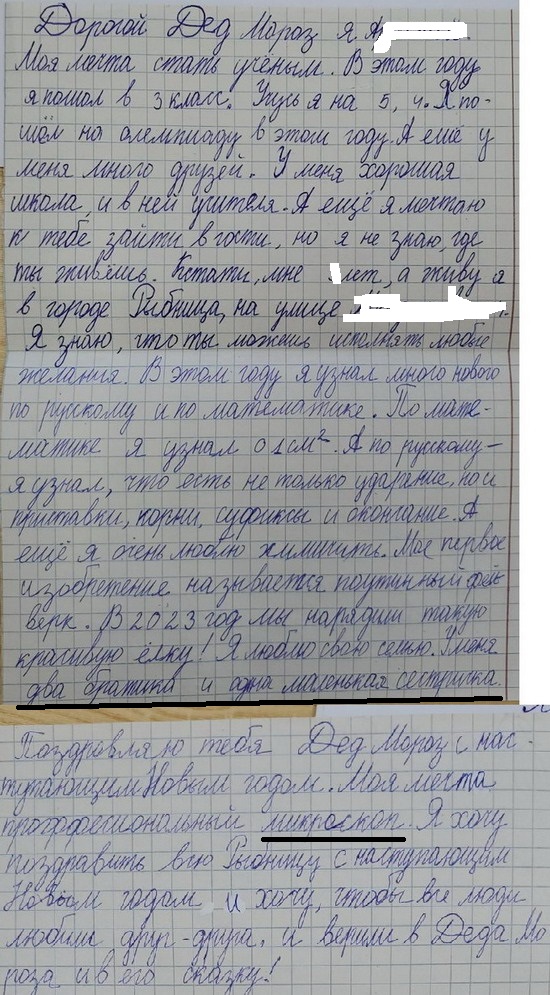 Дорогой Дед Мороз я А
Моя мечта стать учёным. В этом году
я пошол в 3 класс. Учусь я на 5, 4. Я по-
шём на олемпиаду в этом году. А ещё у
меня много друзей. У меня хорошая
школа, и в ней учителя. А ещё я мечтаю
к тебе зайти в гости, но я не знаю, где
ты живёшь. Кстати, мне лет, а живу я
в городе Рыбница, на улице
Я знаю, что ты можешь исполнять любые
желания. В этом году я узнал много нового
по русскому и по математике. По мате-
матике я узнал о 1 см². А по русскому –
я узнал, что есть не только ударение, но и
приставки, корни, суфиксы и окончание. А
ещё я очень люблю химичить. Мое первое
изобретение называется паутинный фей-
верк. В 2023 год мы нарядили такую
красивую ёлку! Я люблю свою семью. У меня
два братика и одна маленькая сестричка.
Поздравляю тебя Дед Мороз с нас-
тупающим Новым годом. Моя мечта
профессиональный микроскоп. Я хочу
поздравить всю Рыбницу с наступающим
Новым годом и хочу, чтобы все люди
любили друг-друга, и верили в Деда Мо
роза и в его сказку!